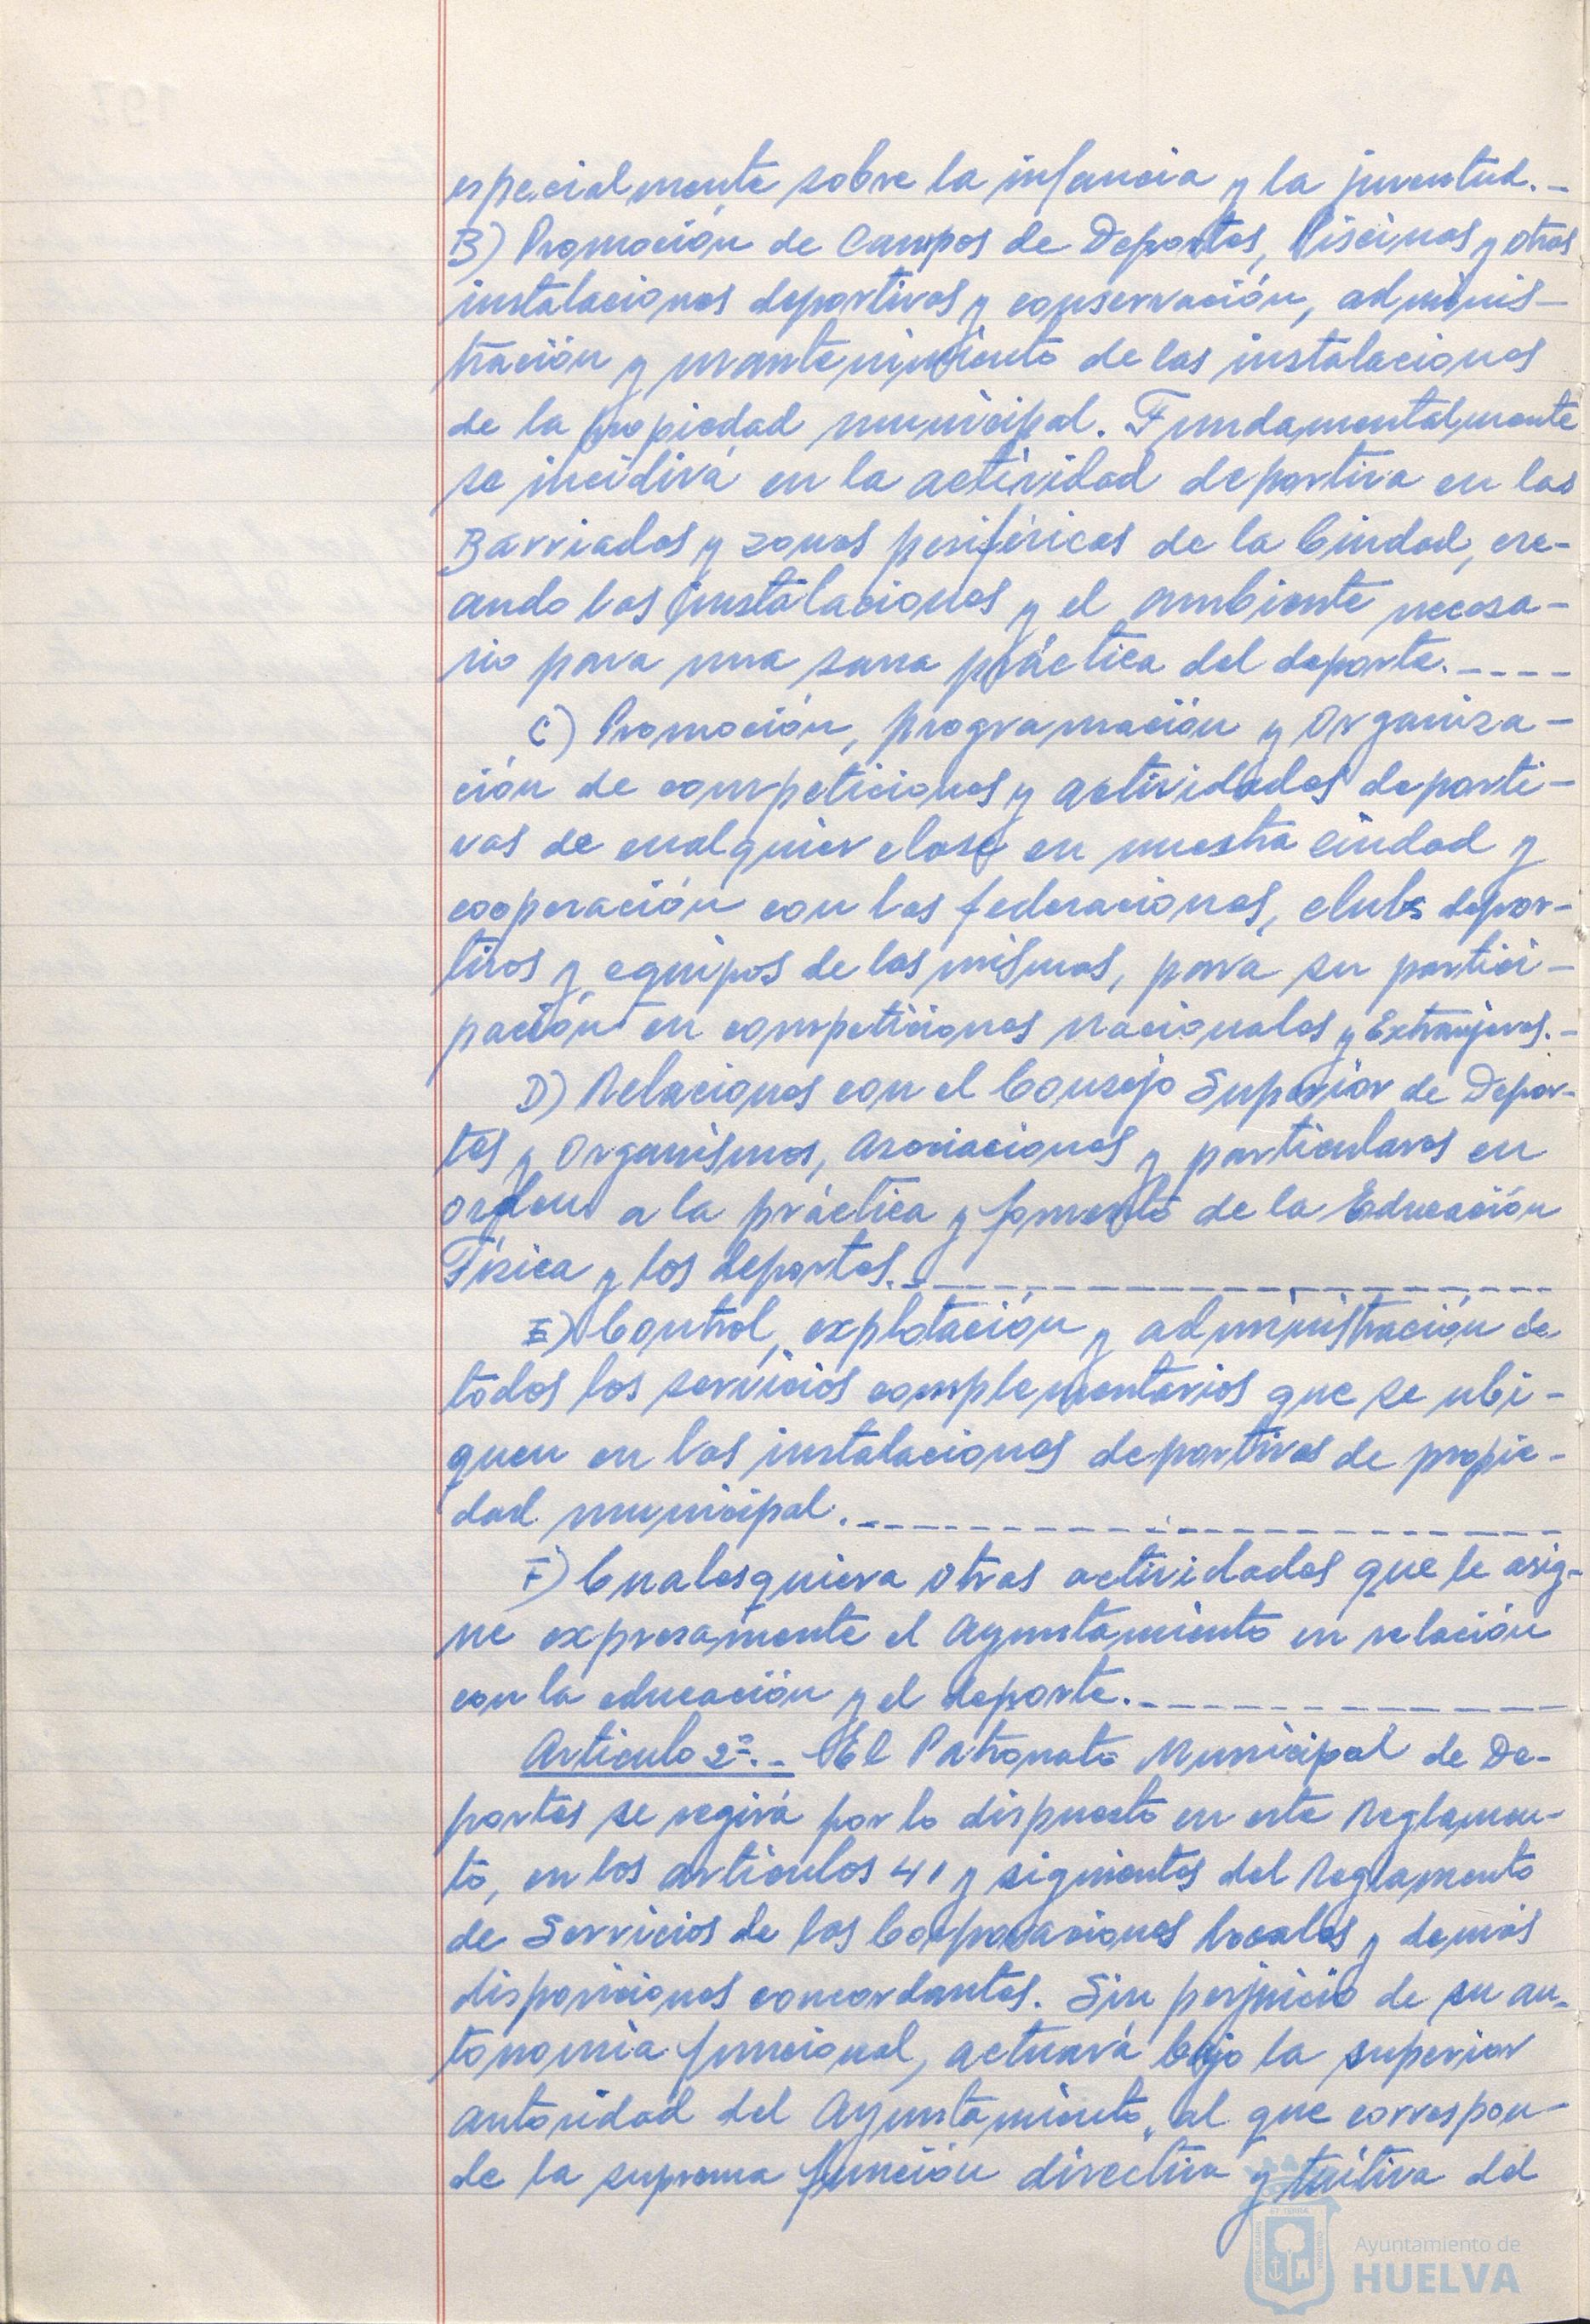 especialmente sobre la infancia y la juventud.-
B) Promoción de Campos de Deportes, Piscinas y otras
instalaciones deportivas y conservación, adminis-
tración y mantenimiento de las instalaciones
de la propiedad municipal. Fundamentalmente
se incidirá en la actividad deportiva en las
Barriadas y zonas periféricas de la Ciudad, cre-
ando las instalaciones y el ambiente necesa-
rio para una sana práctica del deporte.----
C) Promoción, programación y organiza-
ción de competiciones y actividades deporti-
vas de cualquier clase en nuestra ciudad y
cooperación con las federaciones, clubs depor-
tivos y equipos de las mismas, para su partici-
pación en competiciones nacionales y Extranjeras.-
D) Relaciones con el Consejo Superior de Depor-
tes y Organismos, Asociaciones y particulares en
orden a la práctica y fomento de la Educación
Física y los deportes.------------------
E) Control, explotación y administración de
todos los servicios complementarios que se ubi-
quen en las instalaciones deportivas de propie-
dad municipal.------------------
F) Cualesquiera otras actividades que le asig-
ne expresamente el Ayuntamiento en relación
con la educación y el deporte.------------
Artículo 2º.- El Patronato Municipal de De-
portes se regirá por lo dispuesto en este Reglamen-
to, en los artículos 41 y siguientes del Reglamento
de Servicios de las Corporaciones locales y demás
disposiciones concordantes. Sin perjuicio de su au-
tonomía funcional, actuará bajo la superior
autoridad del Ayuntamiento, al que correspon-
de la suprema función directiva y tuitiva del
Ayuntamiento de
HUELVA